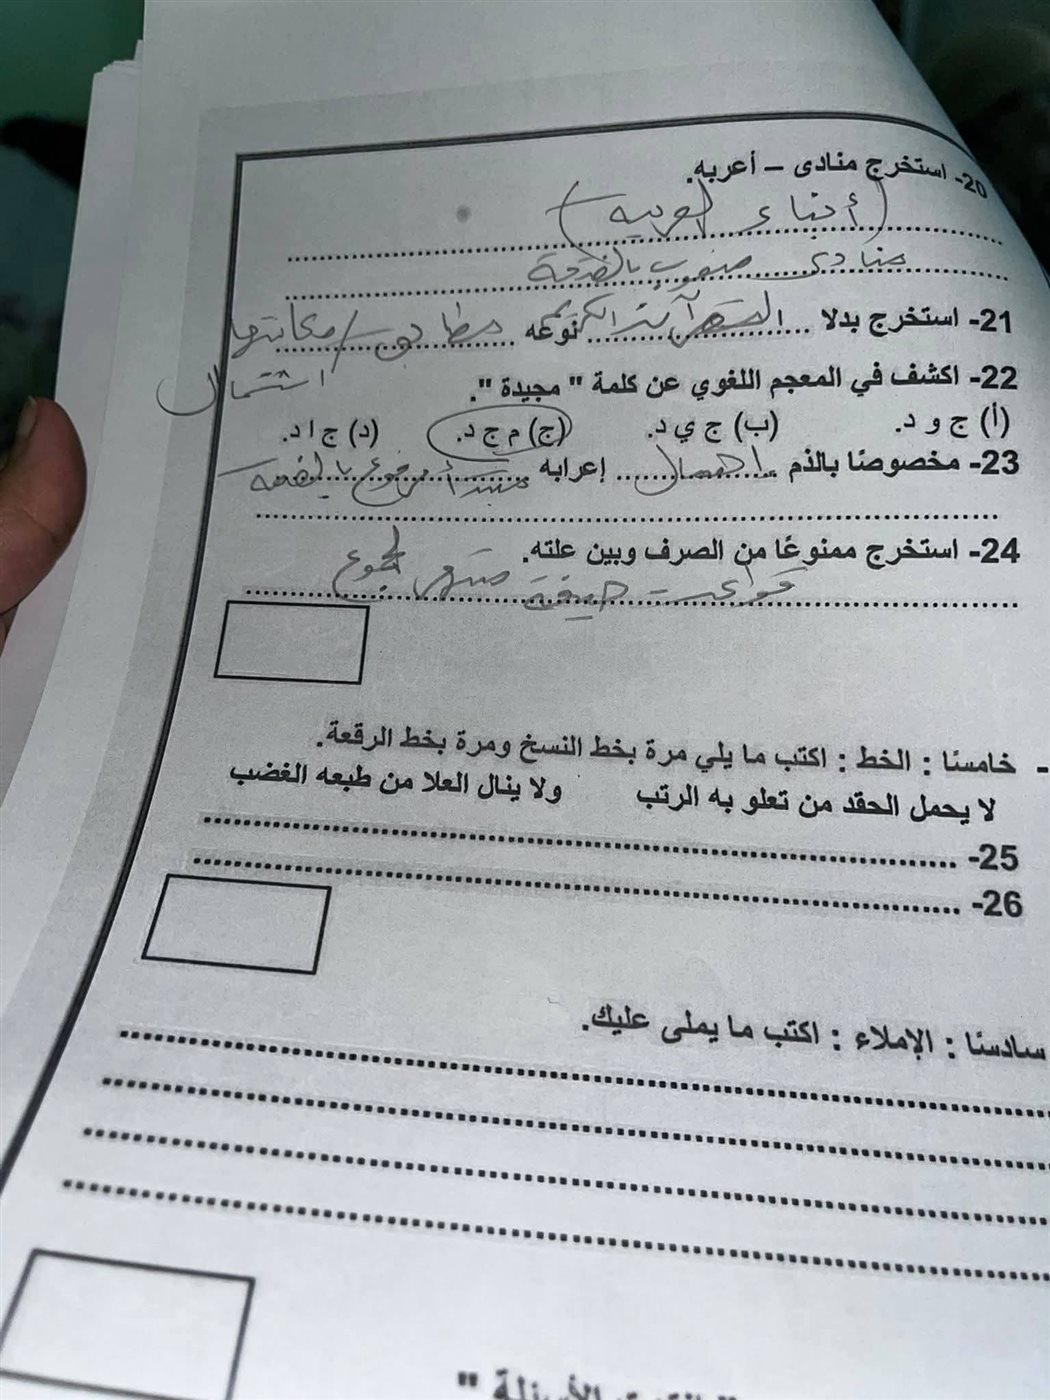 20- استخرج منادى – أعربه.
(أبناء العربية)
منادى منصوب بالفتحة
21- استخرج بدلا القرآن الكريم نوعه مطابق / مكانتها
اشتمال
22- اكشف في المعجم اللغوي عن كلمة " مجيدة ".
(أ) ج و د. (ب) ج ي د. (ج) م ج د. (د) ج ا د.
23- مخصوصًا بالذم إهمال إعرابه مبتدأ مرفوع بالضمة
24- استخرج ممنوعًا من الصرف وبين علته.
قواعد صيغة منتهى الجموع
- خامسًا : الخط : اكتب ما يلي مرة بخط النسخ ومرة بخط الرقعة.
لا يحمل الحقد من تعلو به الرتب ولا ينال العلا من طبعه الغضب
25-
26-
سادسًا : الإملاء : اكتب ما يملى عليك.